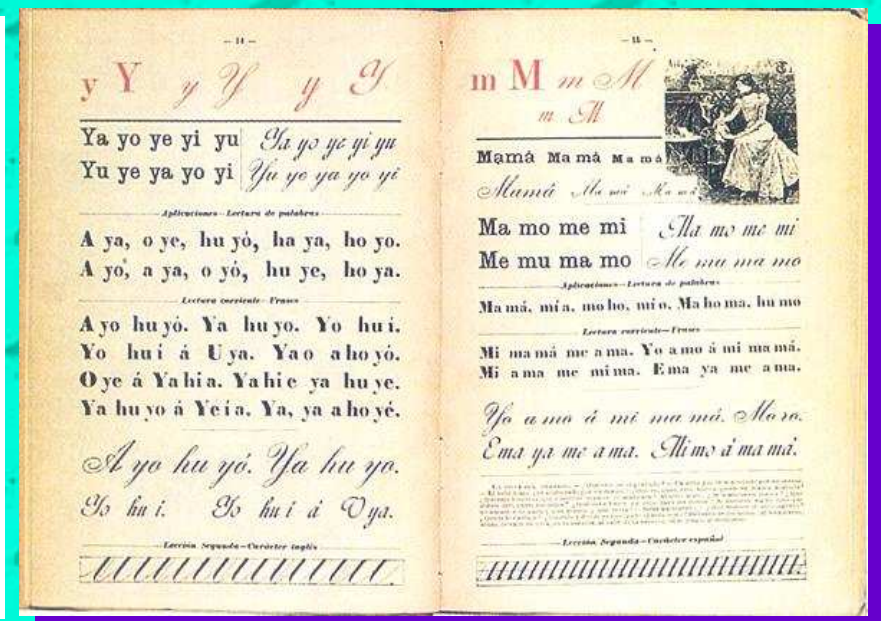 — 14 —
y Y y Y y Y
Ya yo ye yi yu Ya yo ye yi yu
Yu ye ya yo yi Yu ye ya yo yi
Aplicaciones—Lectura de palabras
A ya, o ye, hu yó, ha ya, ho yo.
A yó, a ya, o yó, hu ye, ho ya.
Lectura corriente—Frases
A yo hu yó. Ya hu yo. Yo hu í.
Yo hu í á U ya. Ya o a ho yó.
O ye á Ya hi a. Ya hi e ya hu ye.
Ya hu yo á Ye í a. Ya, ya a ho yé.
A yo hu yó. Ya hu yo.
Yo hu í. Yo hu í á U ya.
Lección Segunda—Carácter inglés
— 15 —
m M m M
m M
Mamá Ma má Ma má
Mamá Ma má Ma má
Ma mo me mi Ma mo me mi
Me mu ma mo Me mu ma mo
Aplicaciones—Lectura de palabras
Ma má, mí a, mo ho, mí o, Ma ho ma, hu mo
Lectura corriente—Frases
Mi ma má me a ma. Yo a mo á mi ma má.
Mi a ma me mi ma. E ma ya me a ma.
Yo a mo á mi ma má. Mo ro.
E ma ya me a ma. Mi mo á ma má.
Lección Segunda—Carácter español